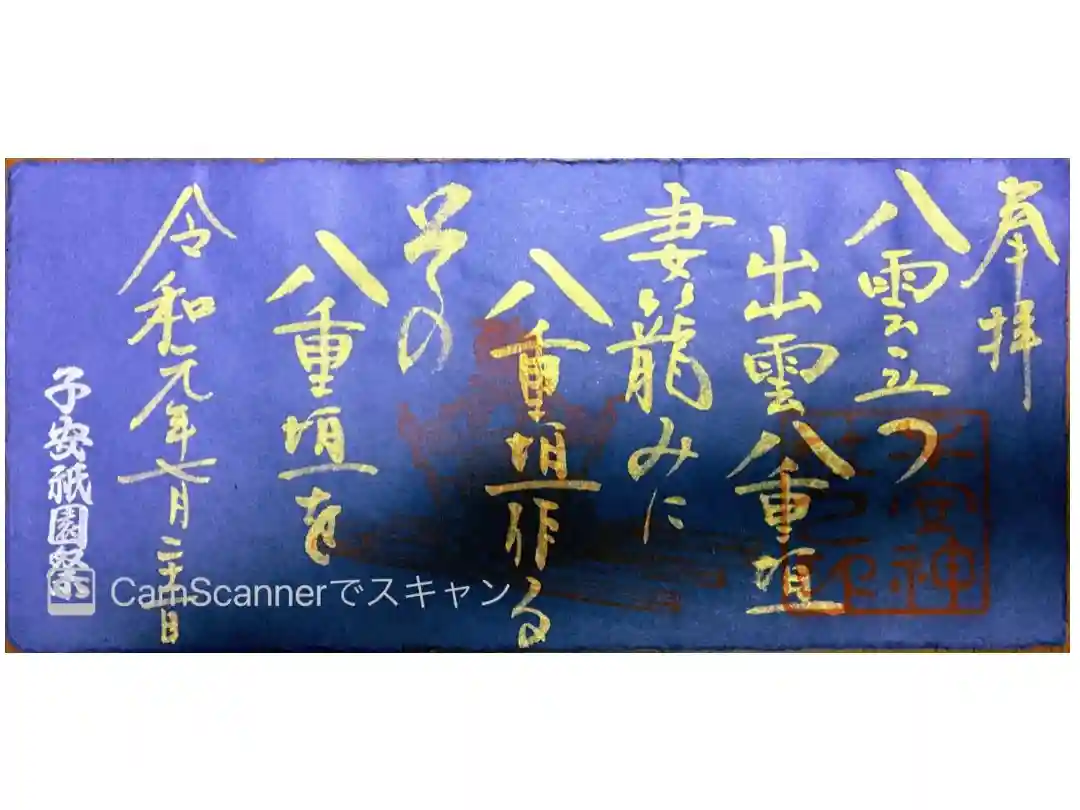 奉拝
八雲立つ
出雲八重垣
妻籠みに
八重垣作る
その
八重垣を
令和元年七月二十日
子安祇園祭
CamScannerでスキャン